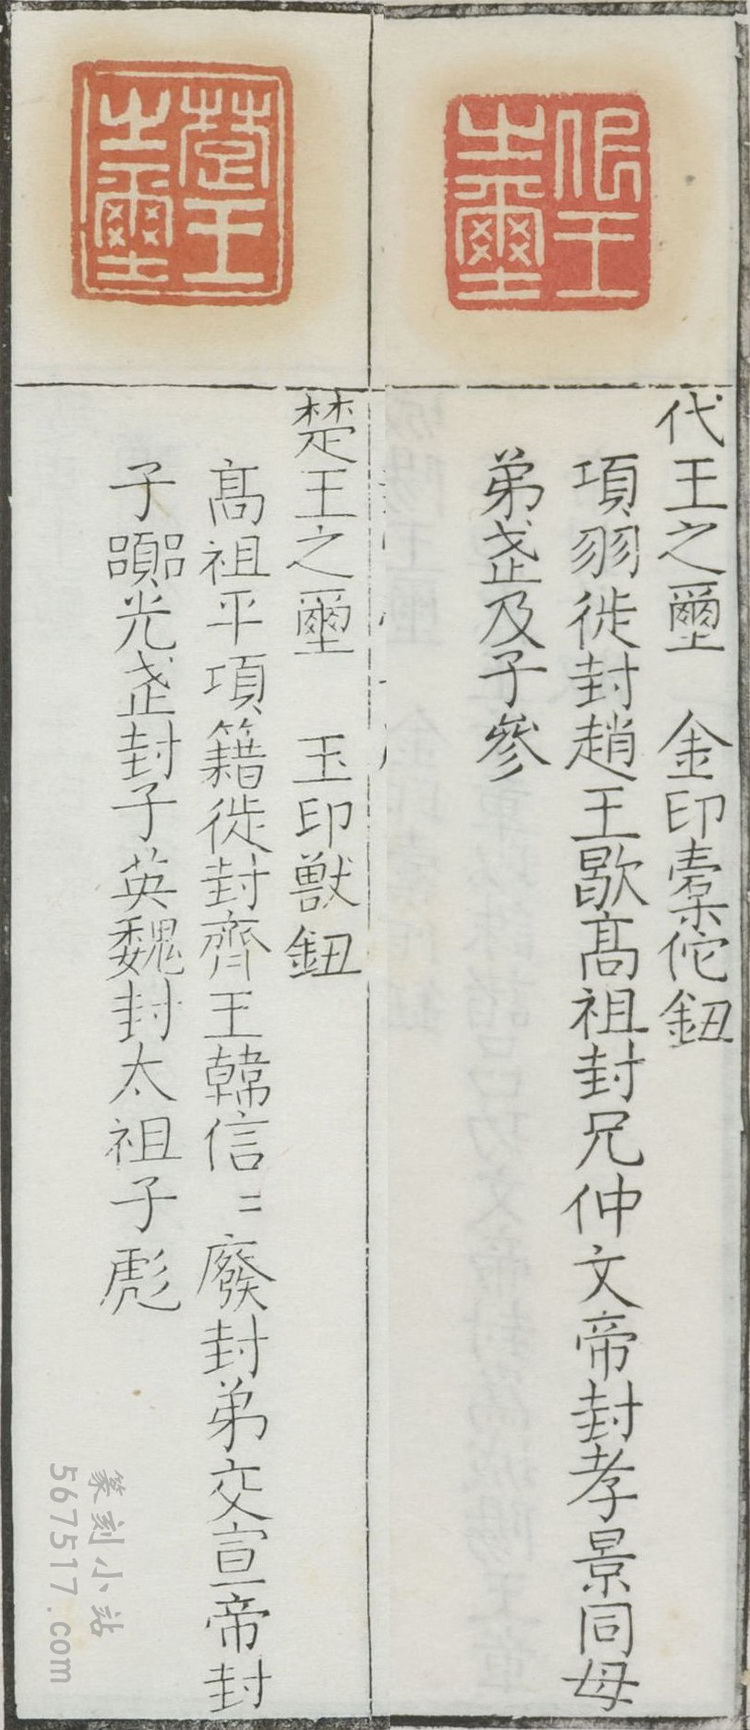 代王之璽
代王之壐　金印橐佗鈕
項羽徙封趙王歇髙祖封兄仲文帝封孝景同母
弟武及子參
楚王之璽
楚王之壐　玉印獸鈕
髙祖平項籍徙封齊王韓信〻廢封弟交宣帝封
子嚻光武封子英魏封太祖子彪
篆刻小站
567517.com